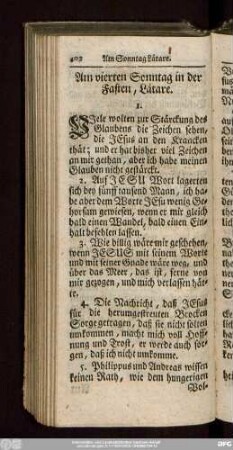 402 Am Sonntag Lätare.
Am vierten Sonntag in der
Fasten, Lätare.
1.
Viele wolten zur Stärckung des
Glaubens die Zeichen sehen,
die JEsus an den Krancken
thät; und er hat bisher viel Zeichen
an mir gethan, aber ich habe meinen
Glauben nicht gestärckt.
2. Auf JESU Wort lagerten
sich bey fünff tausend Mann, ich ha-
be aber dem Worte JEsu wenig Ge-
horsam gewiesen, wenn er mir gleich
bald einen Wandel, bald einen Ein-
halt befehlen lassen.
3. Wie billig wäre mir geschehen,
wenn JESUS mit seinem Worte
und mit seiner Gnade wäre weg, und
über das Meer, das ist, ferne von
mir gezogen, und mich verlassen hät-
te.
4. Die Nachricht, daß JEsus
für die herumgestreuten Brocken
Sorge getragen, daß sie nicht solten
umkommen, macht mich voll Hoff-
nung und Trost, er werde auch sor-
gen, daß ich nicht umkomme.
5. Philippus und Andreas wissen
keinen Rath, wie dem hungerigen
Vol-